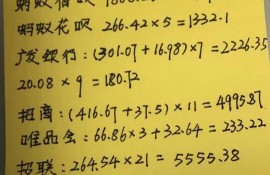 蚂蚁借呗
蚂蚁花呗 266.42×5=1332.1
广发银行:(301.07+16.98)×7=2226.35
20.08×9=180.72
招商:(416.67+37.5)×11=4995.87
唯品会:66.86×3+32.64=233.22
招联:264.54×21=5555.38